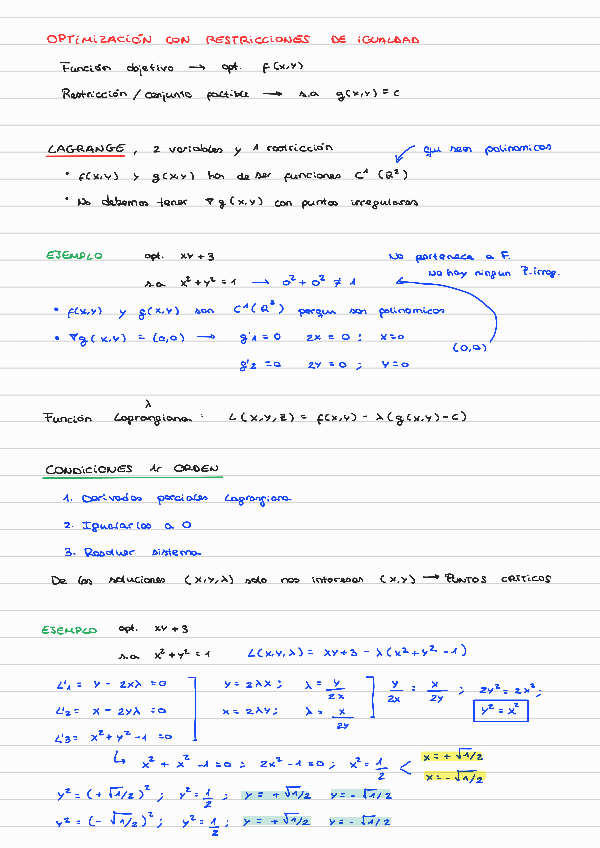 OPTIMIZACIÓN CON RESTRICCIONES DE IGUALDAD
Función objetivo → opt. f(x,y)
Restricción / conjunto factible → s.a g(x,y) = c
LAGRANGE, 2 variables y 1 restricción
que sean polinomicas
• f(x,y) y g(x,y) han de ser funciones C¹ (R²)
• No debemos tener ∇g(x,y) con puntos irregulares
EJEMPLO opt. xy + 3
No pertenece a F.
s.a x² + y² = 1 → 0² + 0² ≠ 1
No hay ningun P. irreg.
• f(x,y) y g(x,y) son C¹(R²) porque son polinomicas
• ∇g(x,y) = (0,0) → g'1 = 0 2x = 0 ; x=0
(0,0)
g'2 = 0 2y = 0 ; y=0
λ
Función Lagrangiana : L(x,y,z) = f(x,y) - λ(g(x,y) - c)
CONDICIONES 1r ORDEN
1. Derivadas parciales Lagrangiana
2. Igualarlas a 0
3. Resolver sistema
De las soluciones (x,y,λ) solo nos interesan (x,y) → PUNTOS CRÍTICOS
EJEMPLO opt. xy + 3
s.a x² + y² = 1 L(x,y,λ) = xy + 3 - λ(x² + y² - 1)
L'1 = y - 2xλ = 0 y = 2λx ; λ = y/2x y/2x = x/2y ; 2y² = 2x² ;
L'2 = x - 2yλ = 0 x = 2λy ; λ = x/2y y² = x²
L'3 = x² + y² - 1 = 0
↳ x² + x² - 1 = 0 ; 2x² - 1 = 0 ; x² = 1/2 < x = +√1/2
x = -√1/2
y² = (+√1/2)² ; y² = 1/2 ; y = +√1/2 y = -√1/2
y² = (-√1/2)² ; y² = 1/2 ; y = +√1/2 y = -√1/2